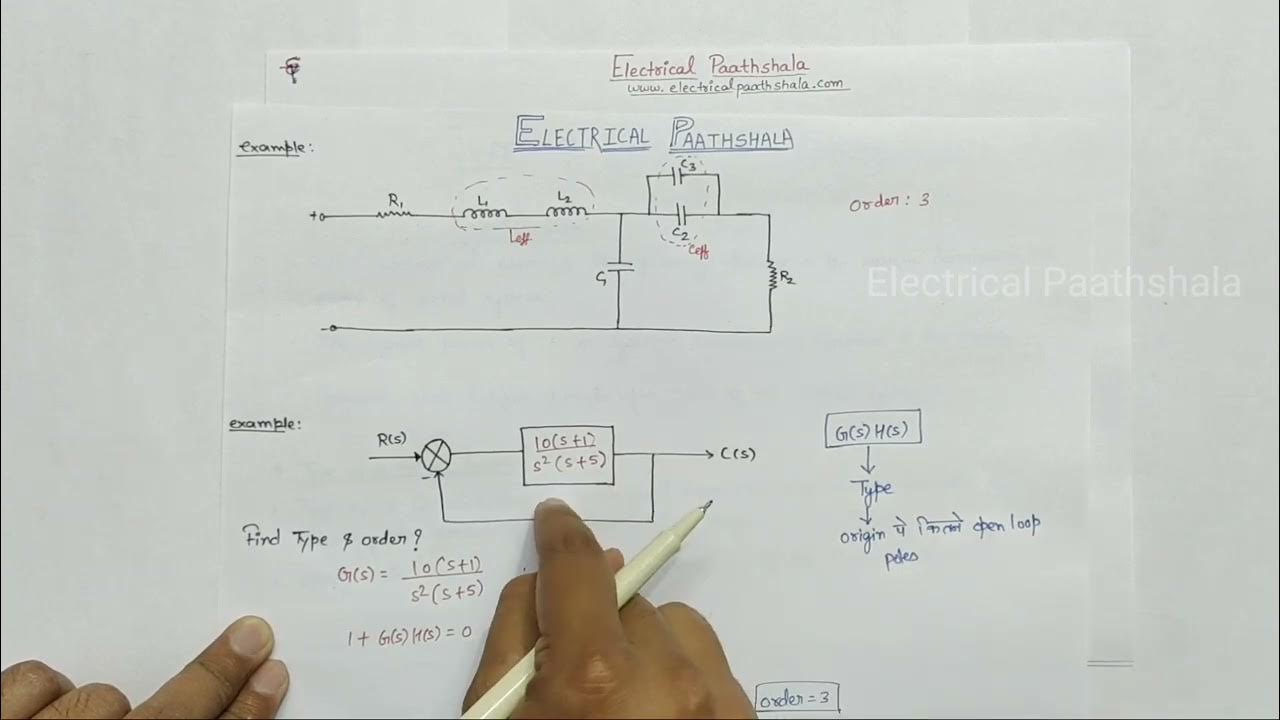 Electrical Paathshala
www.electricalpaathshala.com
ELECTRICAL PAATHSHALA
example:
+
R₁
L₁
L₂
Leff
C₃
C₂
Ceff
C₁
R₂
-
Order: 3
Electrical Paathshala
example:
R(s)
-
10(s+1)
s²(s+5)
C(s)
G(s)H(s)
Type
origin पे कितने open loop
poles
Find Type & order?
G(s) = 10(s+1)
s²(s+5)
1 + G(s)H(s) = 0
order = 3